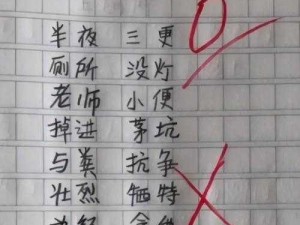 半夜 三更
厕所 没灯
老师 小便
掉进 茅坑
与粪 抗争
壮烈 牺特